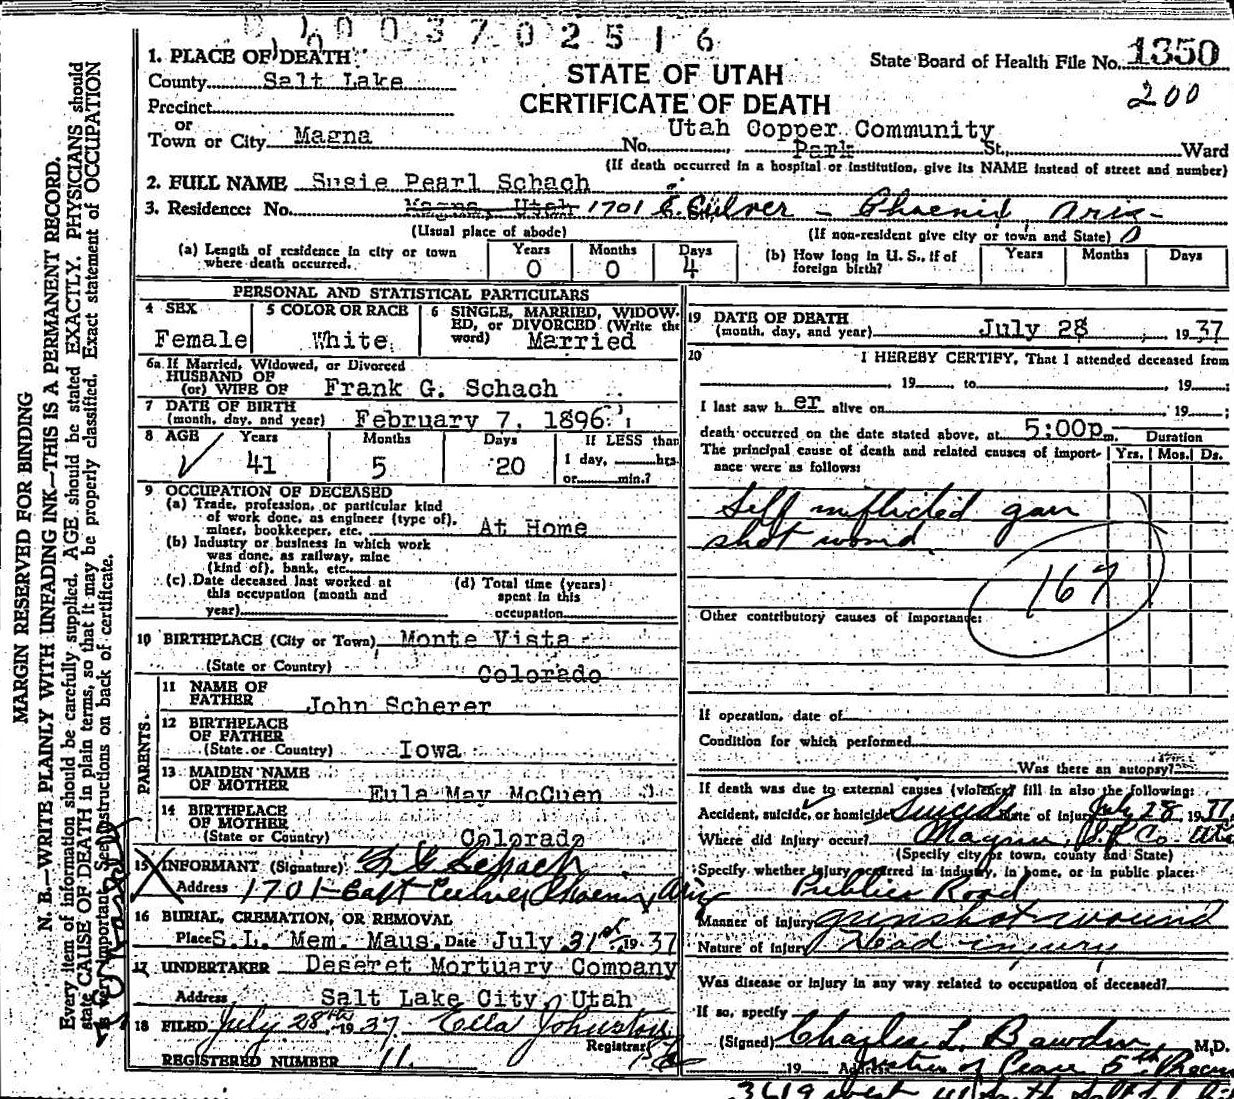 0037 02516
1. PLACE OF DEATH
County Salt Lake
Precinct
or
Town or City Magna
STATE OF UTAH
CERTIFICATE OF DEATH
State Board of Health File No. 1350
200
Utah Copper Community
No. Park St. Ward
(If death occurred in a hospital or institution, give its NAME instead of street and number)
2. FULL NAME Susie Pearl Schach
3. Residence: No. Magna, Utah 1701 E. Culver - Phoenix, Ariz-
(Usual place of abode) (If non-resident give city or town and State)
(a) Length of residence in city or town where death occurred. Years 0 Months 0 Days 4
(b) How long in U. S., if of foreign birth? Years Months Days
PERSONAL AND STATISTICAL PARTICULARS
4 SEX Female
5 COLOR OR RACE White
6 SINGLE, MARRIED, WIDOWED, or DIVORCED (Write the word) Married
6a If Married, Widowed, or Divorced
HUSBAND OF
(or) WIFE OF Frank G. Schach
7 DATE OF BIRTH
(month, day, and year) February 7, 1896
8 AGE Years 41 Months 5 Days 20 If LESS than
1 day, hrs.
or min.?
9 OCCUPATION OF DECEASED
(a) Trade, profession, or particular kind
of work done, as engineer (type of),
miner, bookkeeper, etc. At Home
(b) Industry or business in which work
was done, as railway, mine
(kind of), bank, etc.
(c) Date deceased last worked at
this occupation (month and
year)
(d) Total time (years)
spent in this
occupation
10 BIRTHPLACE (City or Town) Monte Vista
(State or Country) Colorado
PARENTS.
11 NAME OF
FATHER John Scherer
12 BIRTHPLACE
OF FATHER
(State or Country) Iowa
13 MAIDEN NAME
OF MOTHER Eula May McCuen
14 BIRTHPLACE
OF MOTHER
(State or Country) Colorado
15 INFORMANT (Signature) F G Schach
Address 1701-East Culver Phoenix, Ariz
16 BURIAL, CREMATION, OR REMOVAL
Place S.L. Mem. Maus. Date July 31st 1937
17 UNDERTAKER Deseret Mortuary Company
Address Salt Lake City, Utah
18 FILED July 28th 1937 Ella Johnston
Registrar
REGISTERED NUMBER 11.
19 DATE OF DEATH
(month, day, and year) July 28, 1937
20 I HEREBY CERTIFY, That I attended deceased from
, 19 , to , 19 ;
I last saw her alive on , 19 ;
death occurred on the date stated above, at 5:00p m. Duration
The principal cause of death and related causes of importance were as follows: Yrs. Mos. Ds.
Self inflicted gun
shot wond
167
Other contributory causes of importance:
If operation, date of
Condition for which performed
Was there an autopsy?
If death was due to external causes (violence) fill in also the following:
Accident, suicide, or homicide Suicide Date of injury July 28, 1937
Where did injury occur? Magna,
(Specify city or town, county and State)
Specify whether injury occurred in industry, in home, or in public place:
Publice Road
Manner of injury gunshot wound
Nature of injury Head injury
Was disease or injury in any way related to occupation of deceased?
If so, specify
(Signed) Charles L. , M.D.
19 Address Justice of Peace 5th
3619 west
MARGIN RESERVED FOR BINDING
N. B.—WRITE PLAINLY WITH UNFADING INK—THIS IS A PERMANENT RECORD.
Every item of information should be carefully supplied. AGE should be stated EXACTLY. PHYSICIANS should
state CAUSE OF DEATH in plain terms, so that it may be properly classified. Exact statement of OCCUPATION
is very important. See instructions on back of certificate.